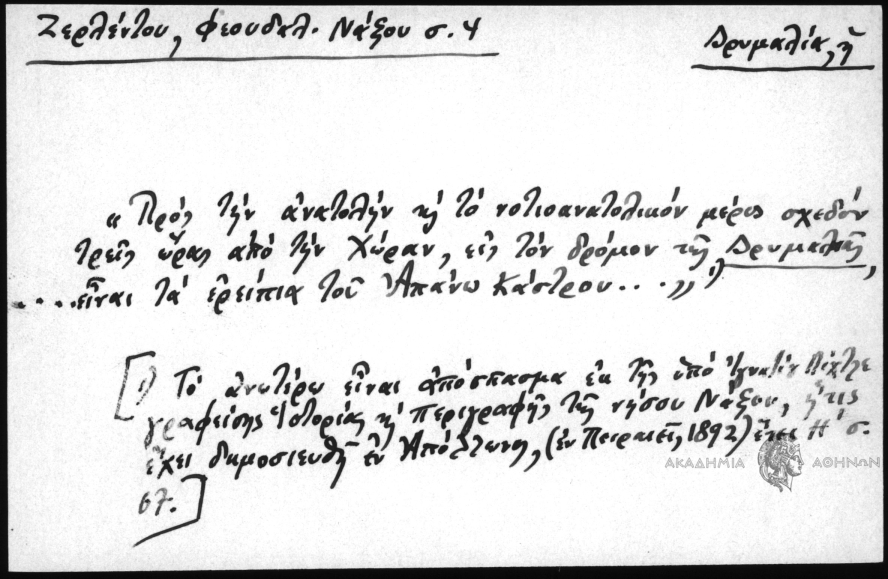 Ζερλέντου, Φεουδαλ. Νάξου σ. 4
Δρυμαλία, ἡ
"Πρὸς τὴν ἀνατολὴν κὴ τὸ νοτιοανατολικόν μέρος σχεδόν
τρεῖς ὥρας ἀπό τὴν Χώραν, εἰς τὸν δρόμον τῆς Δρυμαλίας,
....εἶναι τὰ ἐρείπια τοῦ Ἀπάνω Κάστρου..." 1)
[1) Τὸ ἀνωτέρω εἶναι ἀπόσπασμα ἐκ τῆς ὑπό Ἰγνατίου Λίχτλε
γραφείσης Ἱστορίας κὴ περιγραφῆς τῆς νήσου Νάξου, ἥτις
ἔχει δημοσιευθῆ ἐν Ἀπόλλωνι, (ἐν Πειραιεῖ, 1892) ἔτει Η' σ.
67.]
ΑΚΑΔΗΜΙΑ ΑΘΗΝΩΝ